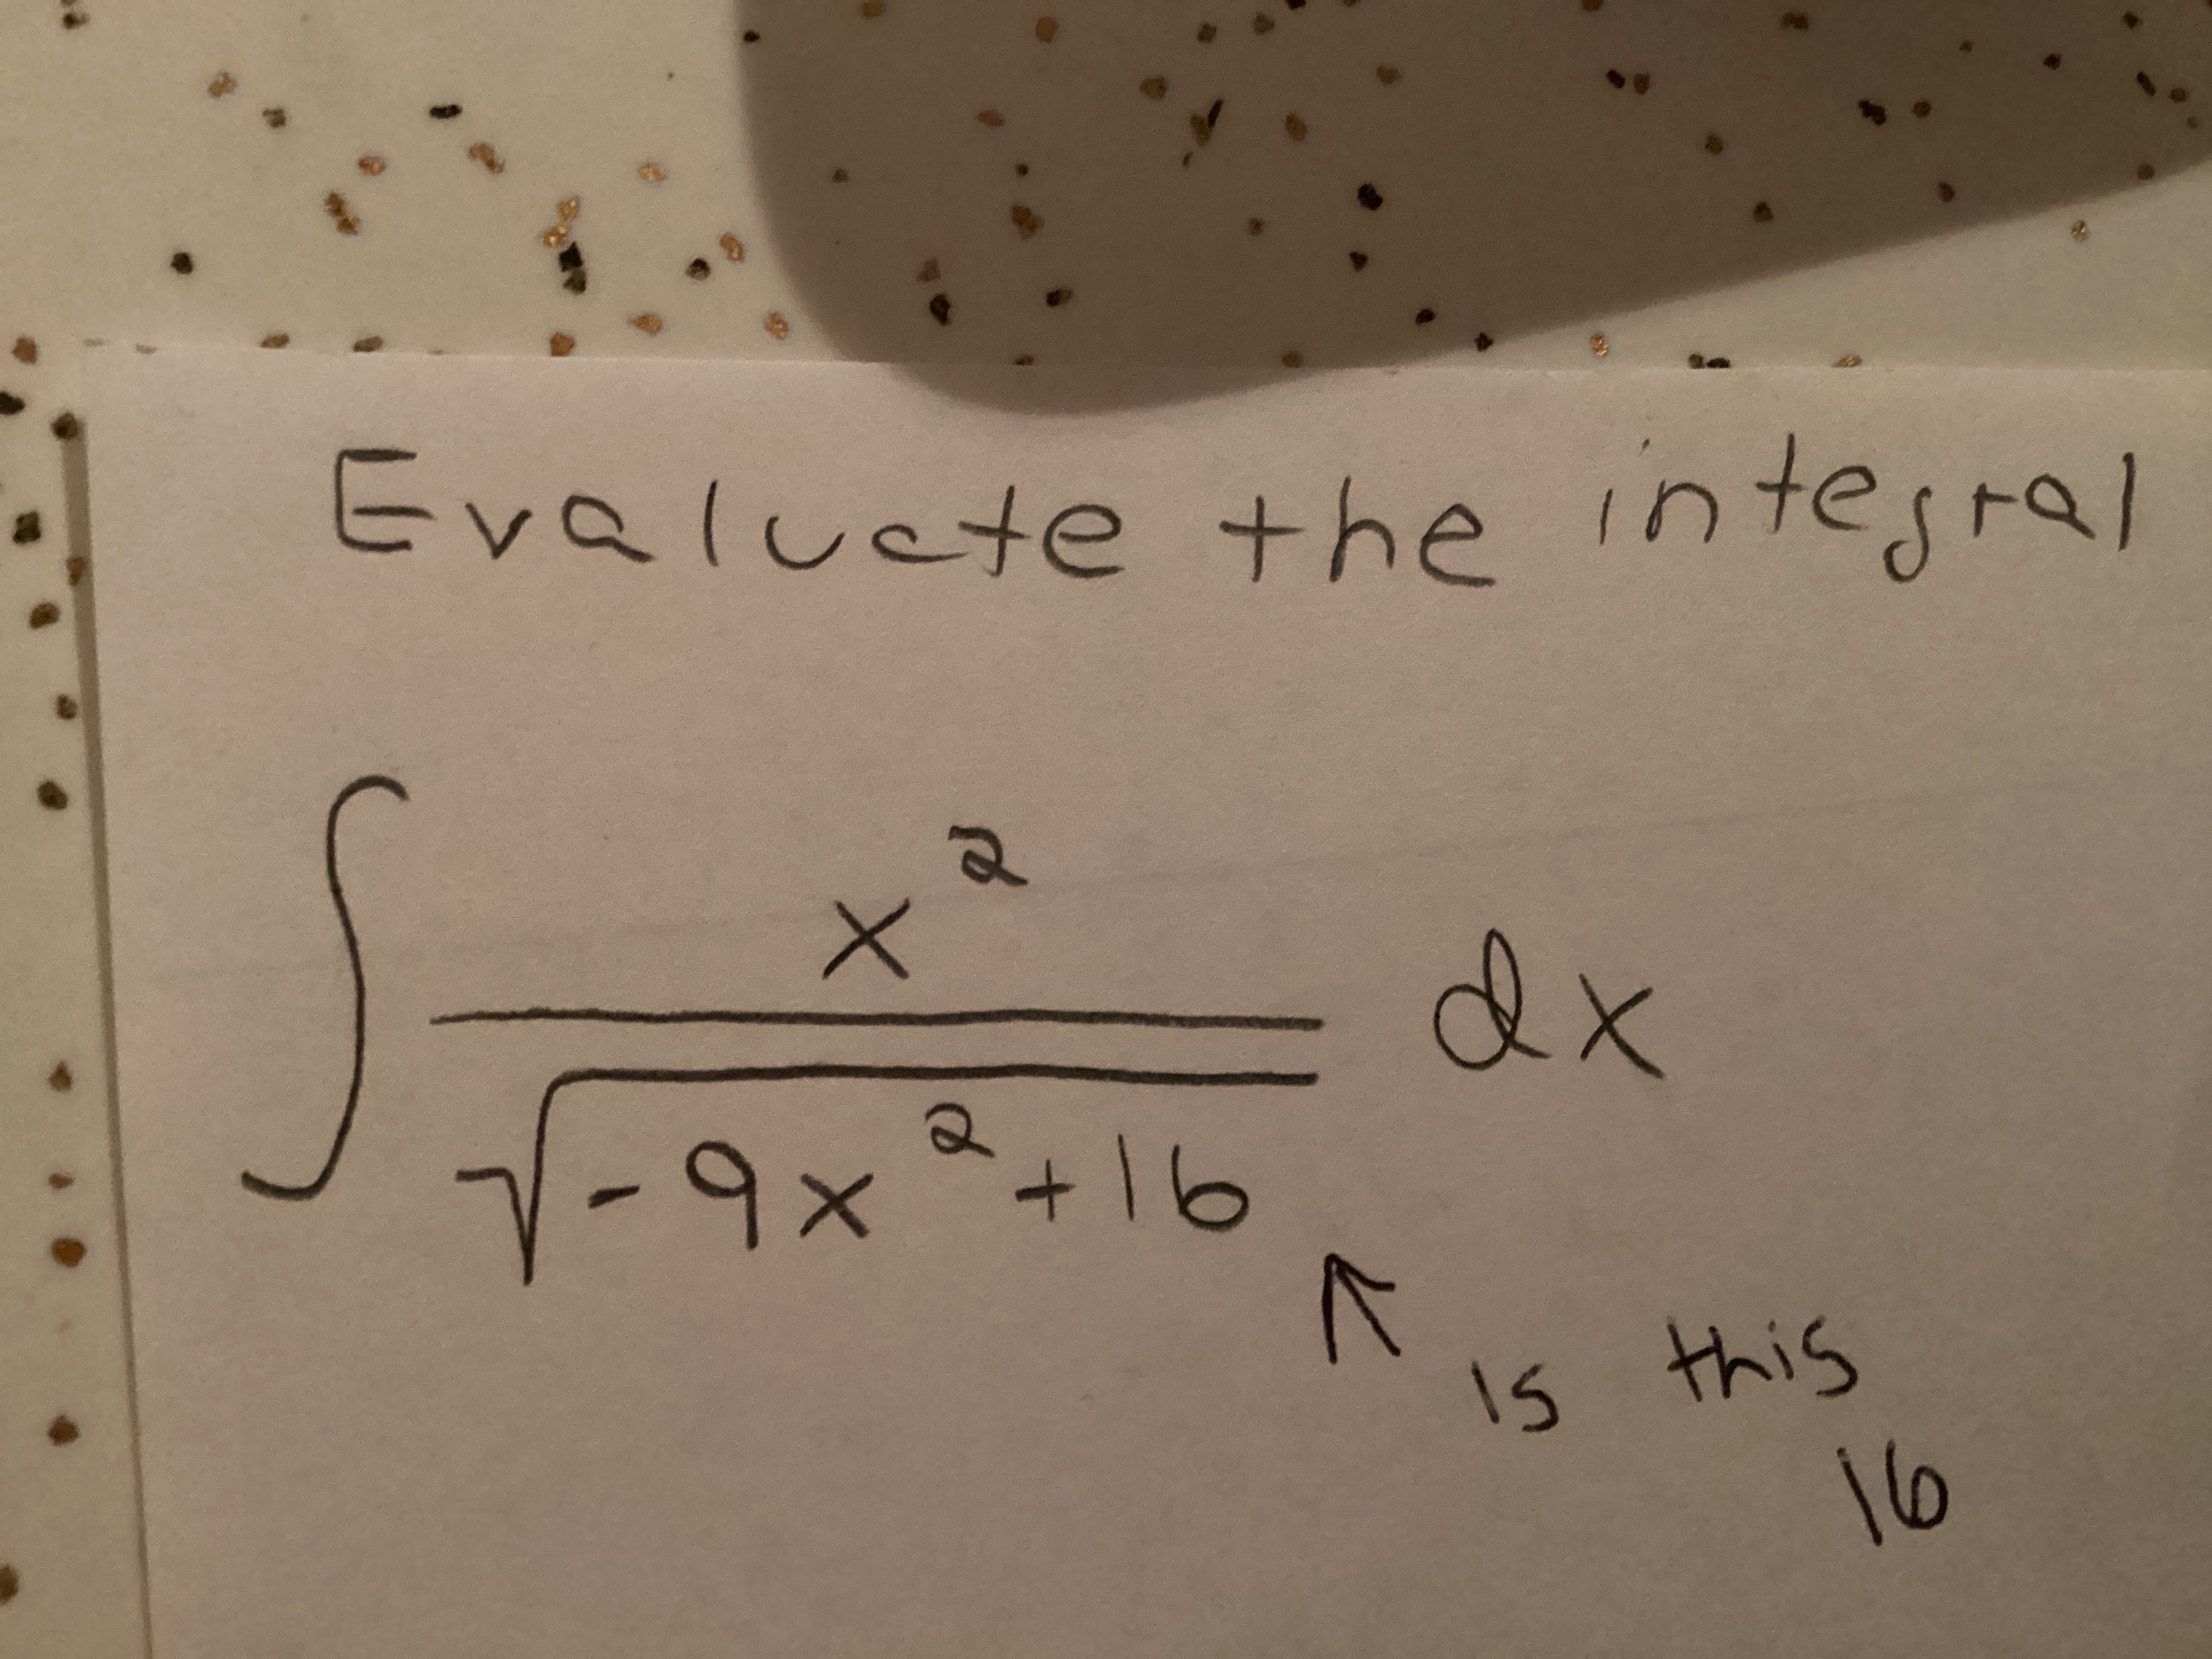 Evaluate the integral
∫ x² / √(-9x² + 16) dx
↑ is this
16